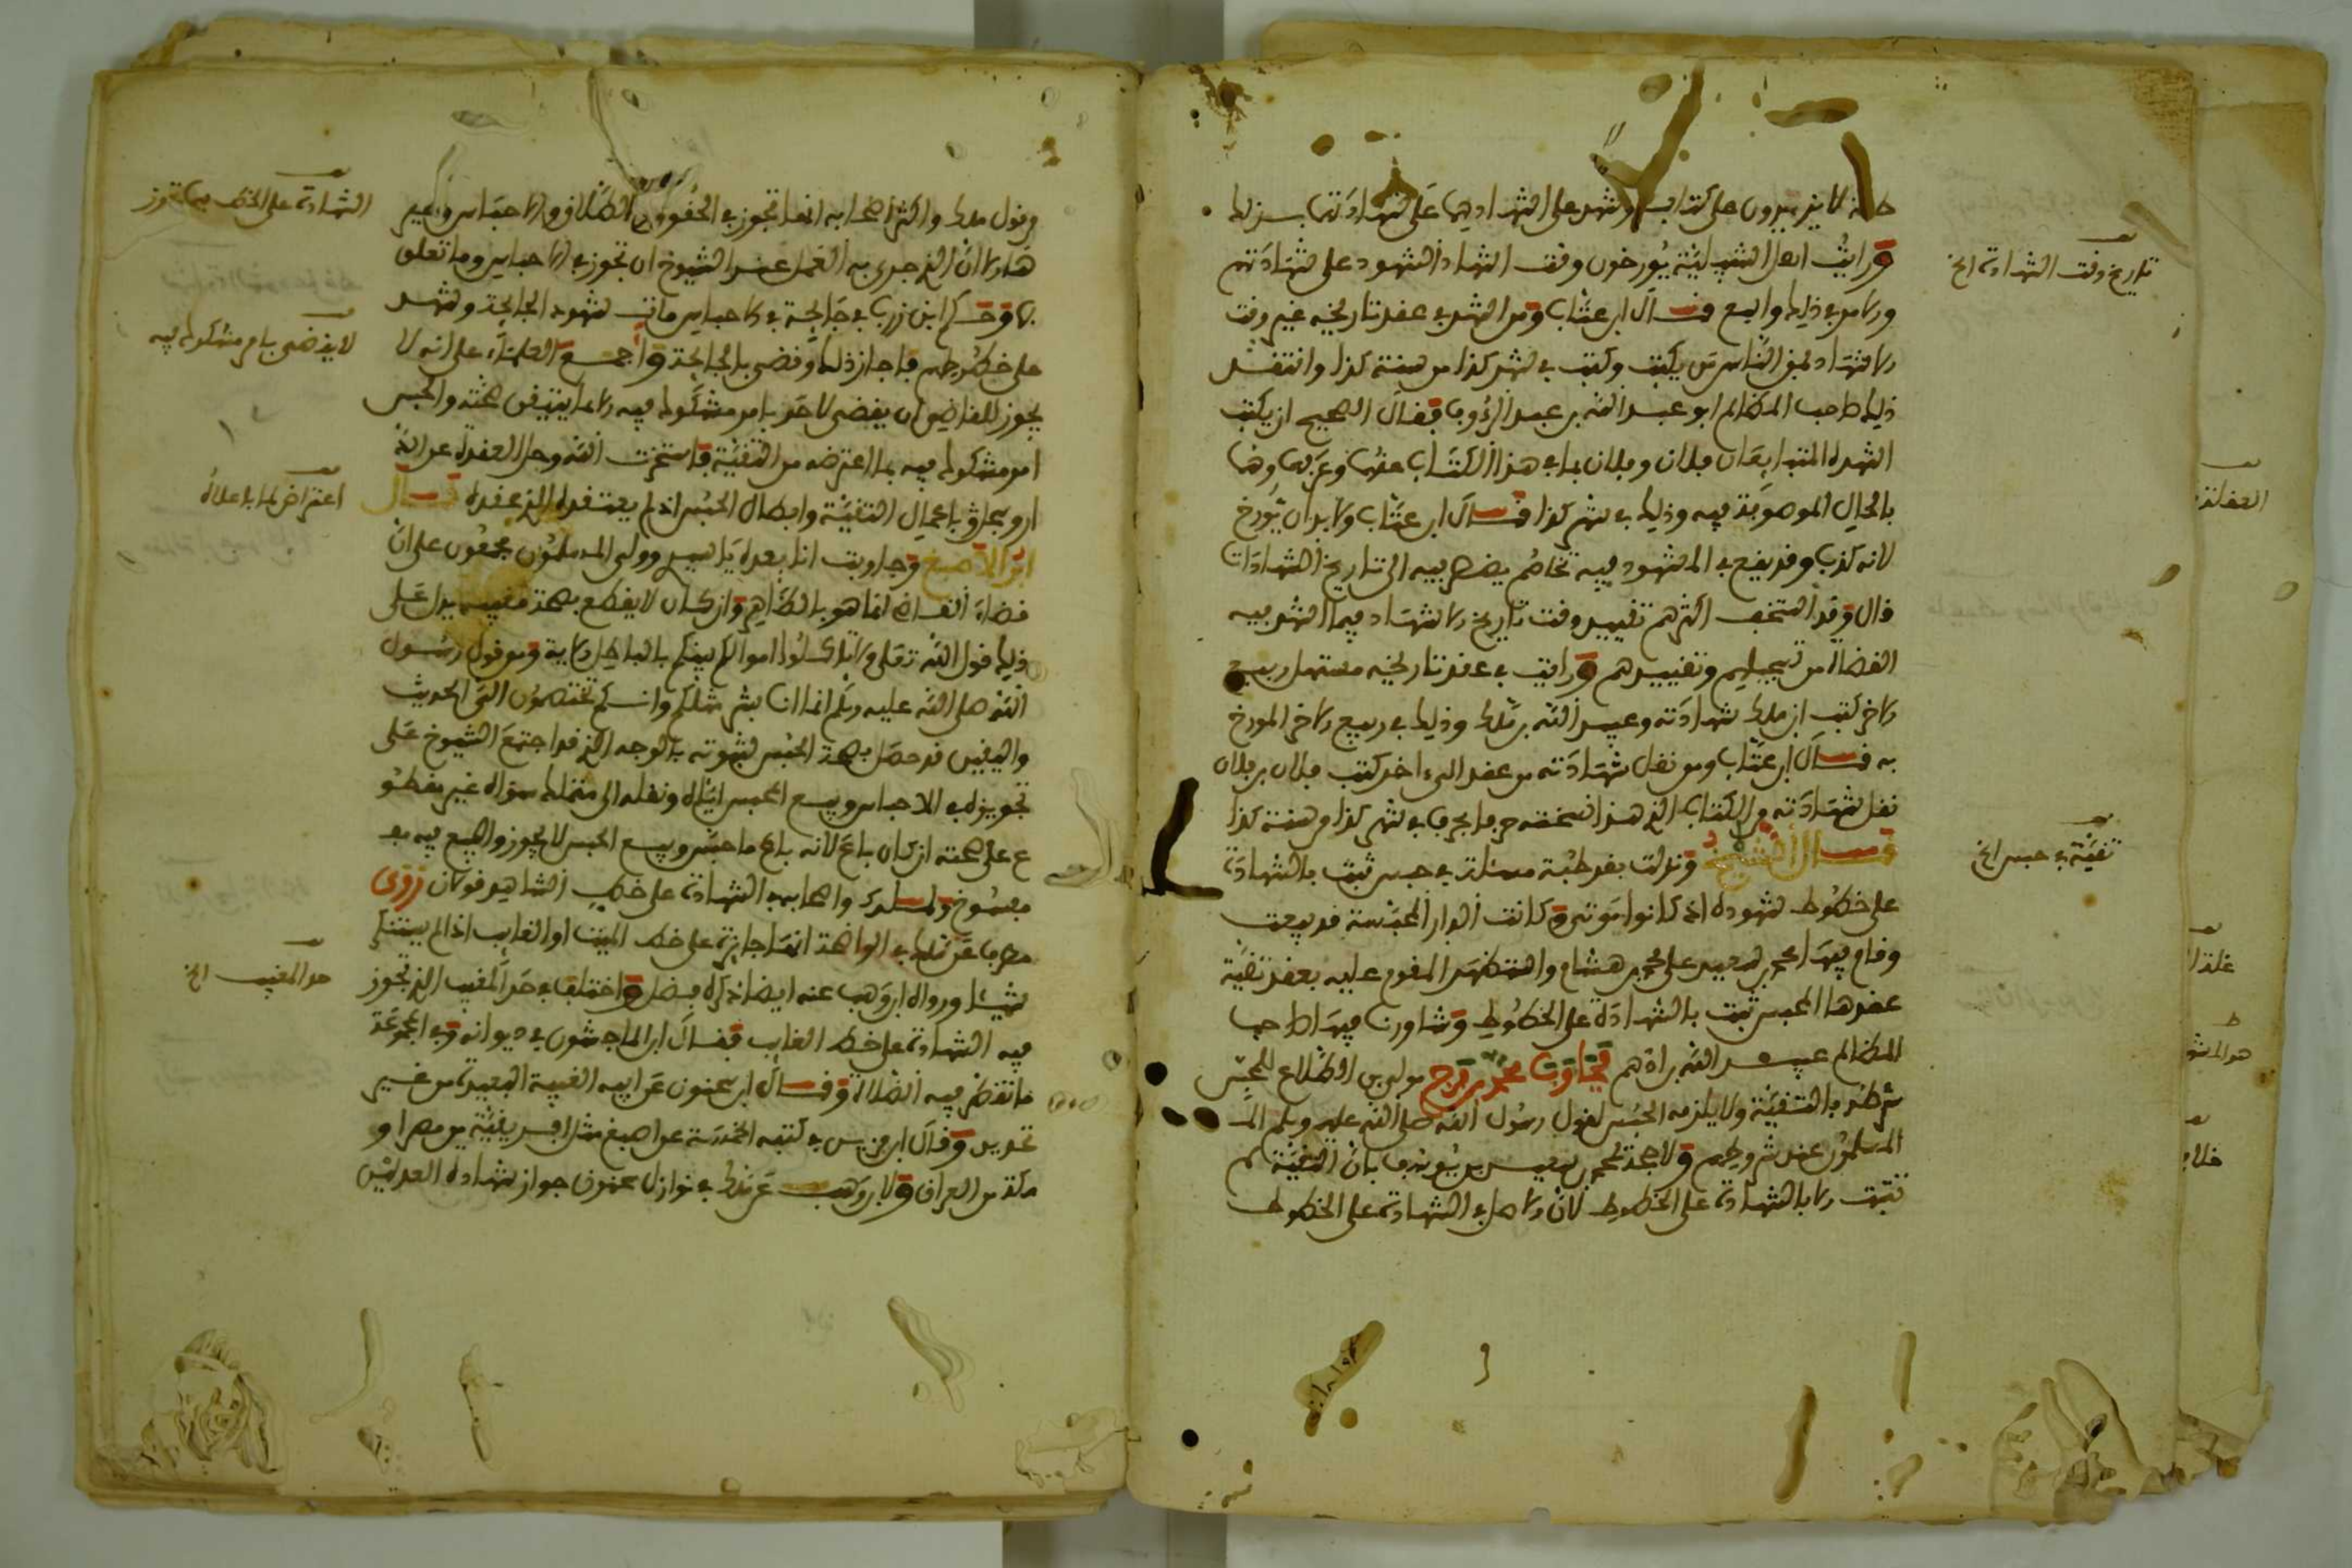 لا يزيدون على كتاب وشهد على اشهاديهما على شهادتهما بذلك
ورايت اهل اشبيلية يؤرخون وقت اشهاد الشهود على شهادتهم
والامر في ذلك واسع قال ابن عتاب ومن اشهد في عقد تاريخه غير وقت
الاشهاد فمن الناس من يكتب وكتب في شهر كذا من سنة كذا وانتقد
ذلك صاحب المظالم ابو عبد الله بن عبد الرؤوف فقال الصحيح ان يكتب
الشهداء المتبايعان فلان وفلان بما في هذا الكتاب عنهما وعرفهما وهما
بالحال الموصوفة فيه وذلك في شهر كذا قال ابن عتاب ولا بد ان يؤرخ
لانه كذب وقد يقع في المشهود فيه تخاصم يضطر فيه الى تاريخ الشهادات
قال وقد استخف اكثرهم تقييد وقت تاريخ الاشهاد فيما اشهد فيه
القضاة من تسجيلهم وتقييدهم ورايت في عقد تاريخه مستهل ربيع
الاخر كتب ابن مالك شهادته وعبيد الله بن مالك وذلك في ربيع الاخر المورخ
به قال ابن عتاب ومن نقل شهادته من عقد الى اخر كتب فلان بن فلان
نقل شهادته من الكتاب الذي هذا نسخته حرفا بحرف في شهر كذا من سنة كذا
قال الشيخ ونزلت بقرطبة مسئلة في حبس ثبت بالشهادة
على خطوط شهوده اذ كانوا موتى وكانت الدار المحبسة قد بيعت
وقام فيها محمد بن سعيد على محمد بن هشام واستظهر المقوم عليه بعقد تقية
عقدها المحبس ثبت بالشهادة على الخطوط وشاورت فيها صاحب
المظالم عبيد الله براءهم فجاوب محمد بن فرج مولى بن الطلاع للمحبس
شرطه بالتقية ولا يلزمه الحبس لقول رسول الله صلى الله عليه وسلم
المسلمون عند شروطهم ولا حجة لمحمد بن سعيد بان التقية لم
تثبت الا بالشهادة على الخطوط لان الاصل في الشهادة على الخطوط
تاريخ وقت الشهادة الخ
تقية في حبس الخ
وقول مالك واكثر اصحابه انها تجوز في الحقوق والطلاق والاحباس وغير
هذا الا ان الذي جرى به العمل عند الشيوخ ان تجوز في الاحباس وما تعلق
بها وحكم ابن زرب في جايحة في الاحباس مات شهود الجايحة وشهد
على خطوطهم فاجاز ذلك وقضى بالجايحة واجمع العلماء على انه لا
يجوز للقاضي ان يقضي لاحد بامر مشكوك فيه الا ما يتيقن صحته والحبس
امر مشكوك فيه بما اعترضه من التقية فاستخرت الله وحل العقدة عن الذ
باعمال التقية وابطال الحبس اذ لم يعتقده الذي عقده قال
ابو الاصبغ وجاوبت انا بعده يا سيدي وولي المسلمون مجمعون على ان
قضاء القاضي انما هو بالظاهر وان كان لا يقطع بصحة مغيبه يدل على
ذلك قول الله تعلى ولا تاكلوا اموالكم بينكم بالباطل الاية ومن قول رسول
الله صلى الله عليه وسلم انما انا بشر مثلكم وانكم تختصمون الي الحديث
واليقين قد حصل بصحة الحبس لثبوته بالوجه الذي قد اجتمع الشيوخ على
تجويزه في الاحباس وبيع المحبس اياه ونقله الى متملك سواه غير مقطو
ع على صحته ان كان باع لانه باع ما حبس وبيع الحبس لا يجوز والبيع فيه
مفسوخ ولمالك واصحابه في الشهادة على خط الشاهد قولان روى
مطرف عن مالك في الواضحة انها جايزة على خط الميت او الغايب اذا لم يستنكر
شيئا ورواه ابن وهب عنه ايضا ذكره فضل واختلف في حد المغيب الذي تجوز
فيه الشهادة على خط الغايب فقال ابن الماجشون في ديوانه وفي المجموعة
ما تقصر فيه الصلاة وقال ابن سحنون عن ابيه الغيبة البعيدة من غير
تحديد وقال ابن مزين في كتبه الخمسة عن اصبغ مثل افريقية من مصر او
مكة من العراق ولابن وهب عن مالك في نوازل سحنون جواز شهادة العدلين
الشهادة على الخط فيما تجوز
لا يقضى بامر مشكوك فيه
اعتراض لما باعلاه
حد المغيب الخ